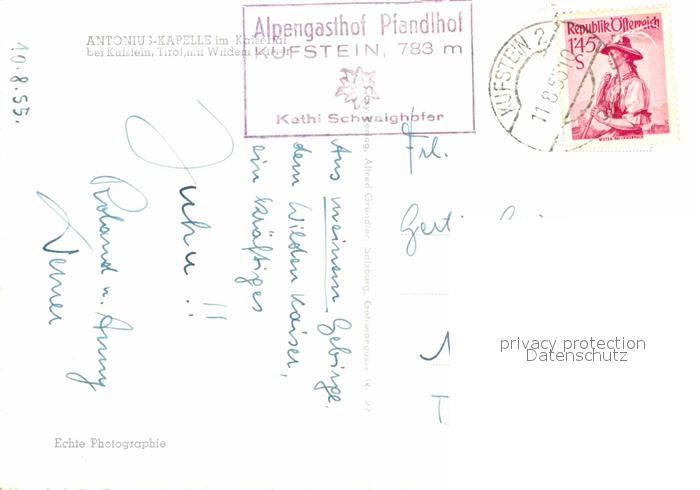 10.8.55.
ANTONIUS-KAPELLE im Kaisertal
bei Kufstein, Tirol, mit Wildem Kaiser
Alpengasthof Pfandlhof
KUFSTEIN, 783 m
Kathi Schwaighofer
KUFSTEIN 2
11.8.55
Republik Österreich
1'45
S
Aus meinem Gebirge,
dem Wilden Kaiser,
ein kräftiges
Juhu!!
Roland u. Anny
Werner
Alfred Gründler, Salzburg,
Frl.
privacy protection
Datenschutz
Echte Photographie